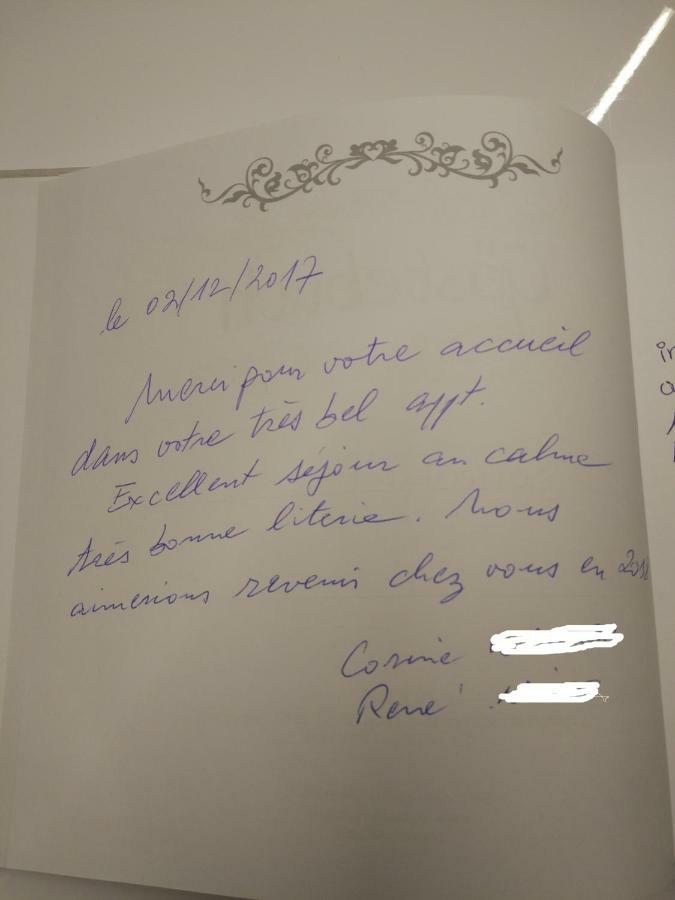 le 02/12/2017
Merci pour votre accueil
dans votre très bel appt.
Excellent séjour au calme
très bonne literie. Nous
aimerions revenir chez vous en 2018
Corine
René